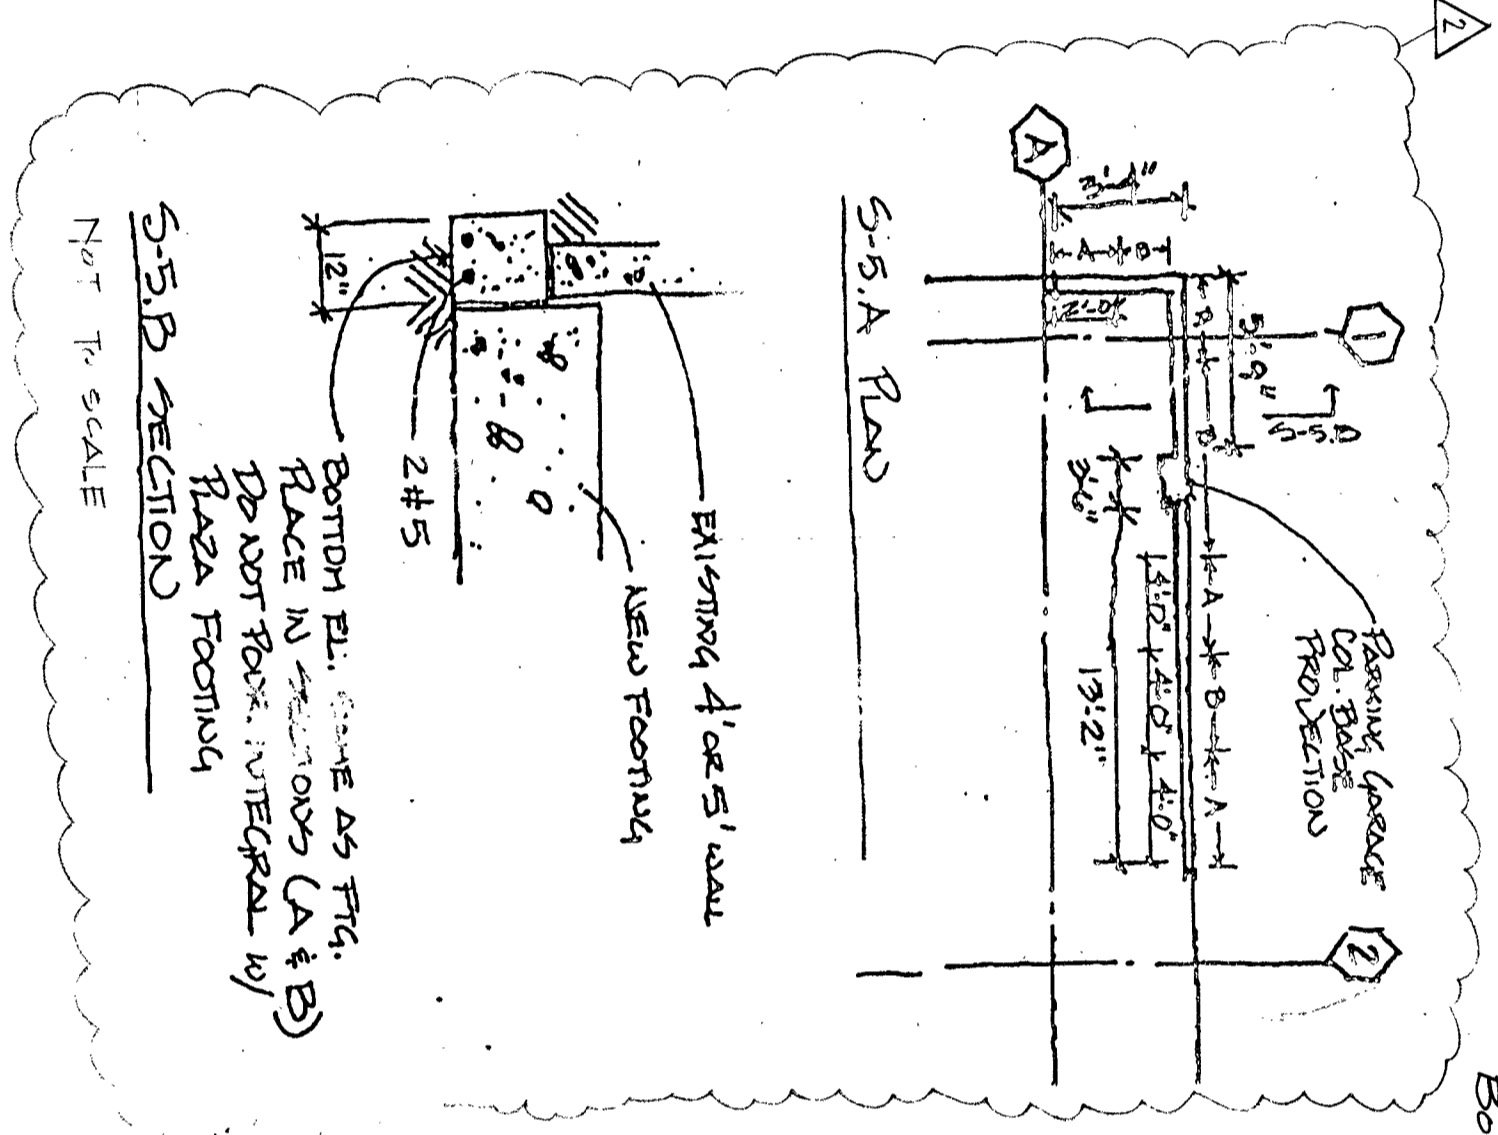 2
1
2
A
5'-9"
S-5.B
PARKING GARAGE
COL. BASE
PROJECTION
A
B
A
B
A
B
A
2'-0"
3'-6"
4'-0"
4'-0"
4'-0"
13'-2"
S-5.A PLAN
EXISTING 4' OR 5' WALL
NEW FOOTING
2#5
12"
BOTTOM EL. SAME AS FTG.
PLACE IN SECTIONS (A & B)
DO NOT POUR INTEGRAL W/
PLAZA FOOTING
S-5.B SECTION
NOT TO SCALE
Bo